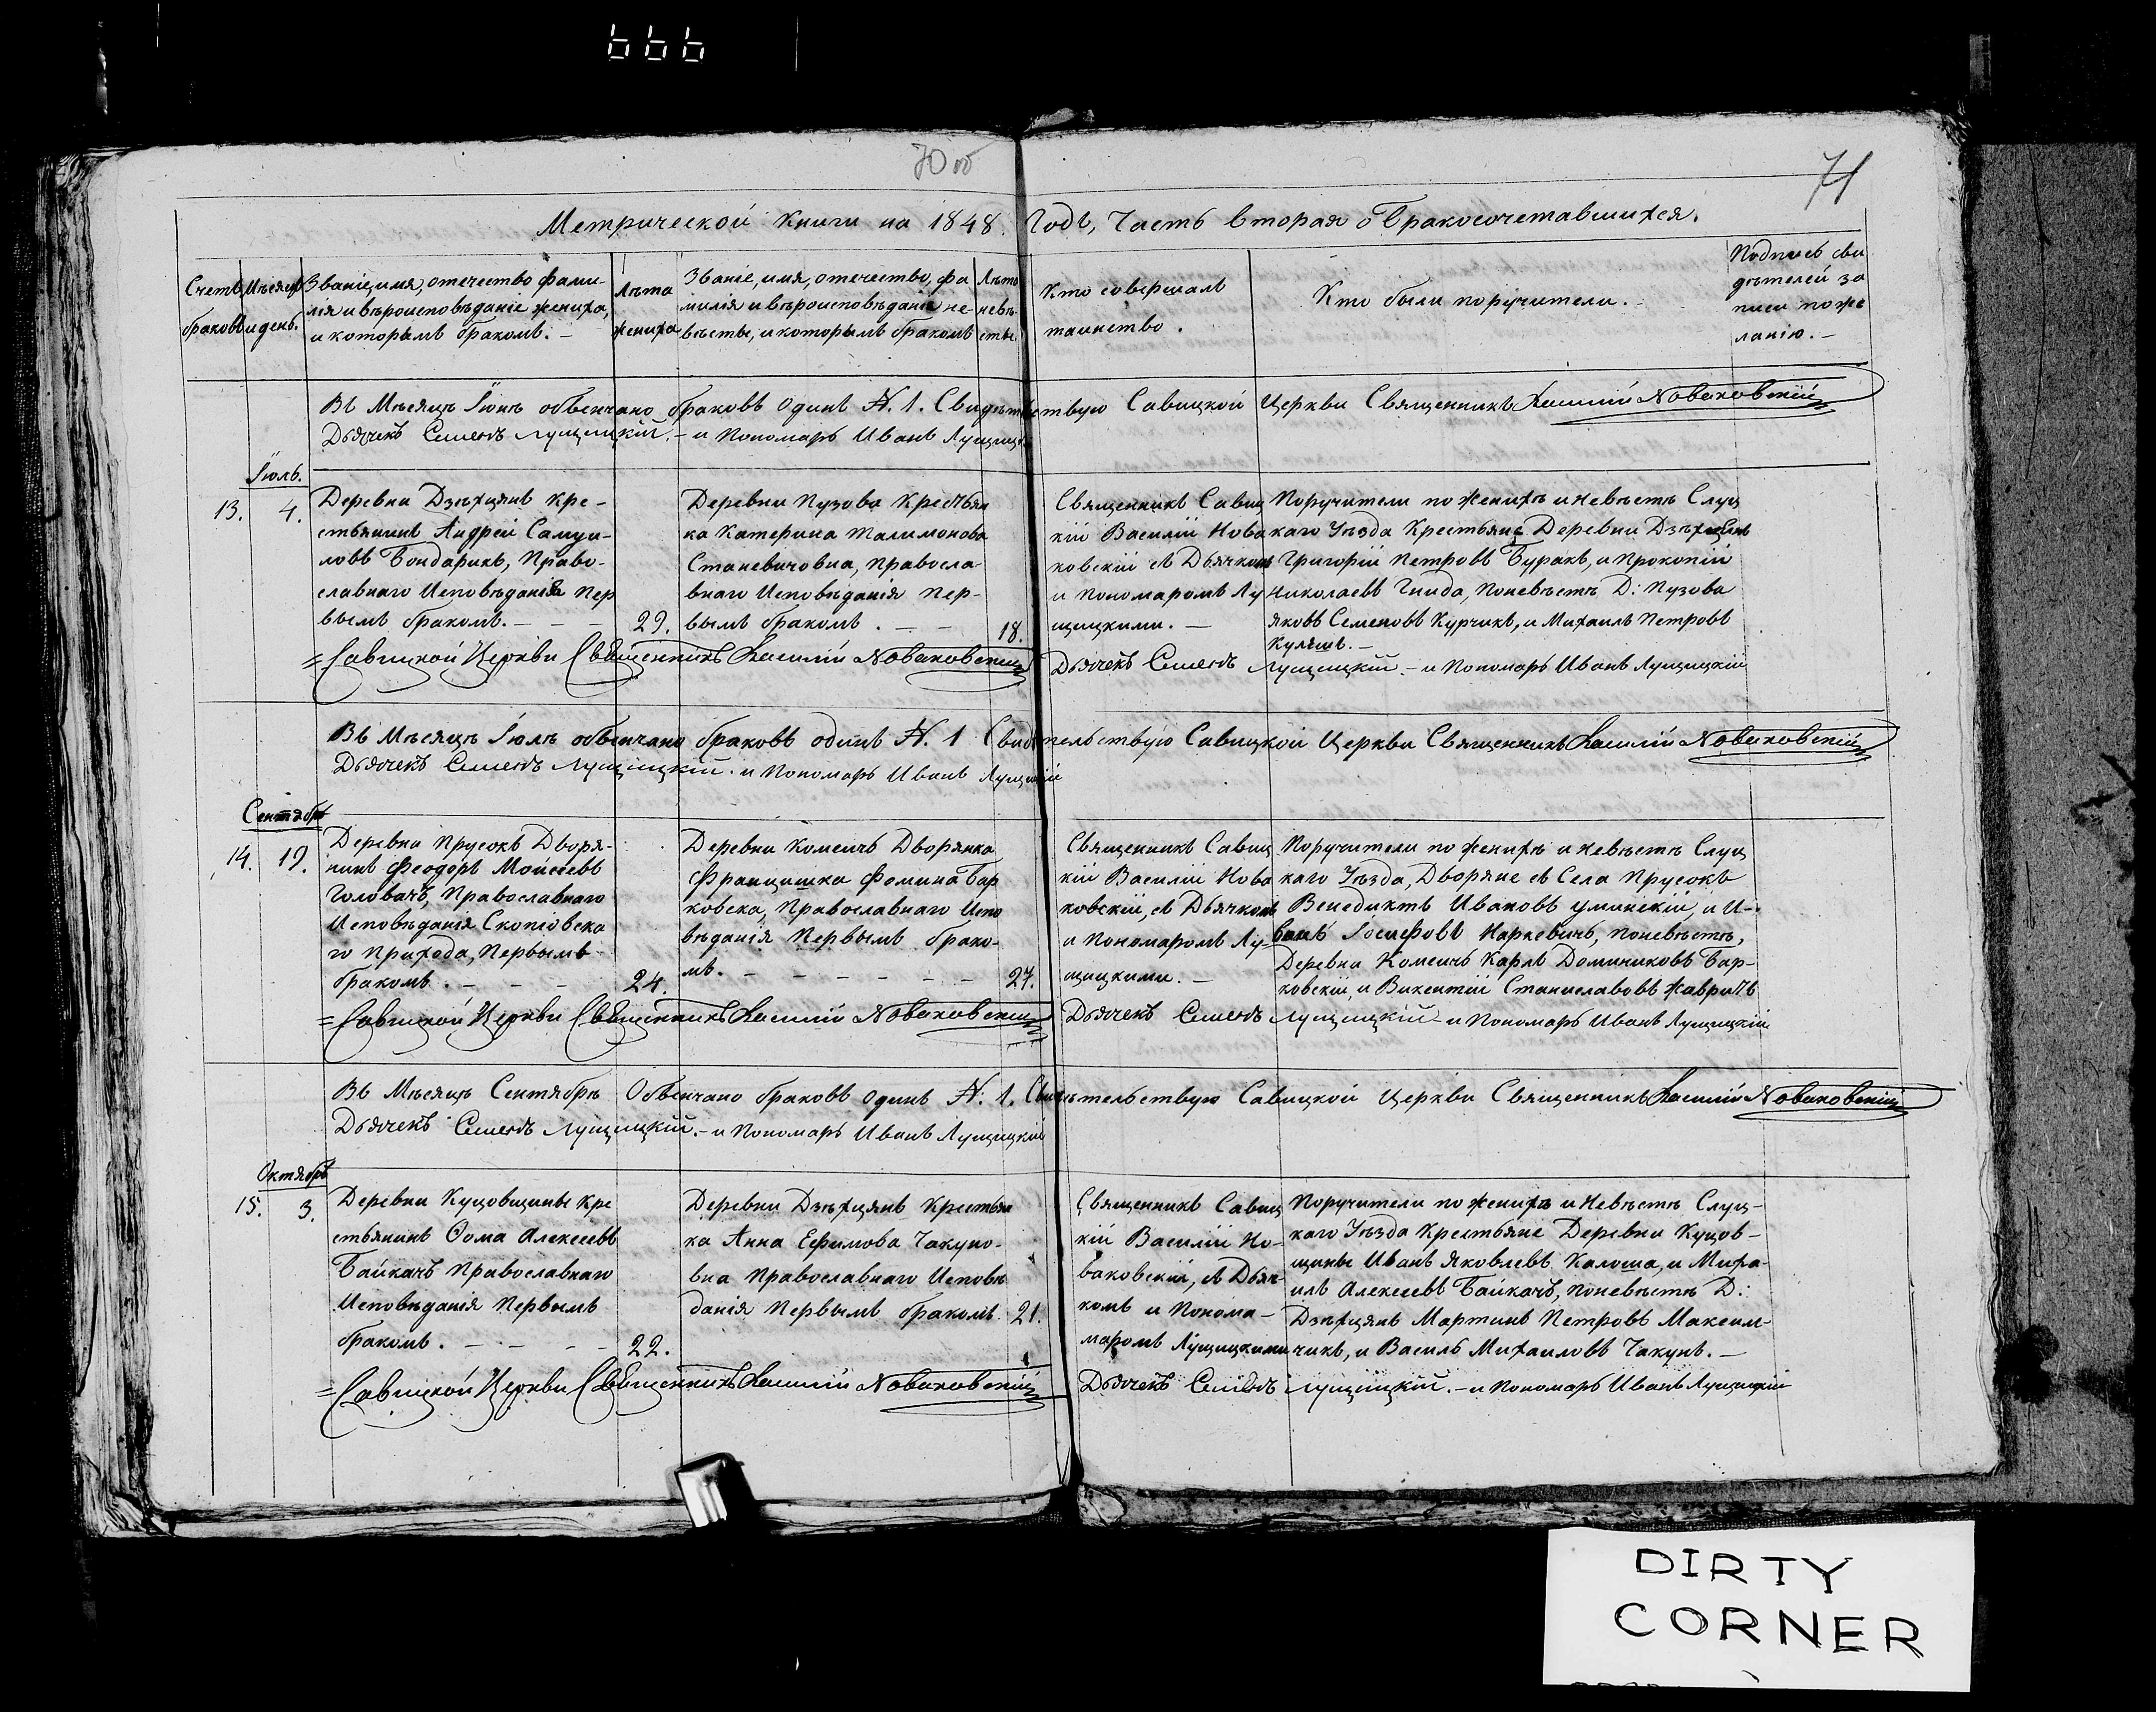 666
70 об
71
Метрической Книги на 1848. Годъ, Часть вторая о Бракосочетавшихся.
Счетъ браковъ
Мѣсяцъ и день.
Званіе, имя, отечество фами-
лія и вѣроисповѣданіе жениха,
и которымъ бракомъ. –
Лѣта
жениха
Званіе, имя, отечество, фа
милія и вѣроисповѣданіе не-
вѣсты, и которымъ бракомъ
Лѣта
невѣ-
сты.
Кто совершалъ
таинство.
Кто были поручители. –
Подпись сви
дѣтелей за
писи по же
ланію. –
Въ Мѣсяцѣ Іюнѣ обвенчано браковъ одинъ N. 1. Свидѣтельствую Савицкой Церкви Священникъ Василій Новаковскій
Дьячекъ Семенъ Лущицкій. – и Пономарь Иванъ Лущицкій
Іюль.
13. 4.
Деревни Дзѣхцянъ Кре-
стьянинъ Андрей Самуи-
ловъ Бондарикъ, Право-
славнаго Исповѣданія Пер
вымъ бракомъ. – – –
29.
Деревни Пузова Крестьян
ка Катерина Талимонова
Станевичовна, Правосла-
внаго Исповѣданія Пер-
вымъ бракомъ. – –
18.
Священникъ Савиц
кій Василій Нова
ковскій съ Дьячкомъ
и Пономаромъ Лу
щицкими. –
Поручители по Женихѣ и Невѣстѣ Слуц
каго Уѣзда Крестьяне Деревни Дзѣхцянъ
Григорій Петровъ Буракъ, и Прокопій
Николаевъ Гнида, Поневѣстѣ Д: Пузова
Яковъ Семеновъ Курчикъ, и Михаилъ Петровъ
Кулешъ. –
=Савицкой Церкви Священникъ Василій Новаковскій
Дьячекъ Семенъ Лущицкій. – и Пономарь Иванъ Лущицкій
Въ Мѣсяцѣ Іюлѣ обвенчано браковъ одинъ N. 1 Свидѣтельствую Савицкой Церкви Священникъ Василій Новаковскій
Дьячекъ Семенъ Лущицкій. и Пономарь Иванъ Лущицкій
Сентябрь
14. 19.
Деревни Прусокъ Дворя-
нинъ Феодоръ Мойсеевъ
Головачъ, Православнаго
Исповѣданія Скопіовска
го прихода, Первымъ
бракомъ. – – –
24.
Деревни Комсичъ Дворянка
Францишка Фомина Бар
ковска, Православнаго Испо
вѣданія Первымъ брако-
мъ. – – – – – –
27.
Священникъ Савиц
кій Василій Нова
ковскій, съ Дьячкомъ
и Пономаромъ Лу-
щицкими. –
Поручители по Женихѣ и Невѣстѣ Слуц
каго Уѣзда, Дворяне съ Села Прусокъ
Венедиктъ Ивановъ Уминскій, и И-
ванъ Іосифовъ Наркевичъ, поневѣстѣ,
Деревни Комсичъ Карлъ Доминиковъ Бар-
ковскій, и Викентій Станиславовъ Жавридъ
=Савицкой Церкви Священникъ Василій Новаковскій
Дьячекъ Семенъ Лущицкій – и Пономарь Иванъ Лущицкій
Въ Мѣсяцѣ Сентябрѣ Обвенчано браковъ одинъ N. 1. Свидѣтельствую Савицкой Церкви Священникъ Василій Новаковскій
Дьячекъ Семенъ Лущицкій. – и Пономарь Иванъ Лущицкій
Октябрь
15. 3.
Деревни Куцовщины Кре
стьянинъ Ѳома Алексеевъ
Байкачъ Православнаго
Исповѣданія Первымъ
бракомъ. – – – –
22.
Деревни Дзѣхцянъ Крестьян
ка Анна Ефимова Чакуно-
вна Православнаго Исповѣ
данія Первымъ бракомъ.
21.
Священникъ Савиц
кій Василій Но-
ваковскій, съ Дьяч-
комъ и Понома-
маромъ Лущицкими
Поручители по женихѣ и Невѣстѣ Слуц-
каго Уѣзда Крестьяне Деревни Куцов-
щины Иванъ Яковлевъ Калоша, и Миха-
илъ Алексеевъ Байкачъ, поневѣстѣ Д:
Дзѣхцянъ Мартинъ Петровъ Максим-
чикъ, и Василь Михаиловъ Чакунъ. –
=Савицкой Церкви Священникъ Василій Новаковскій
Дьячекъ Семенъ Лущицкій. – и Пономарь Иванъ Лущицкій
DIRTY
CORNER